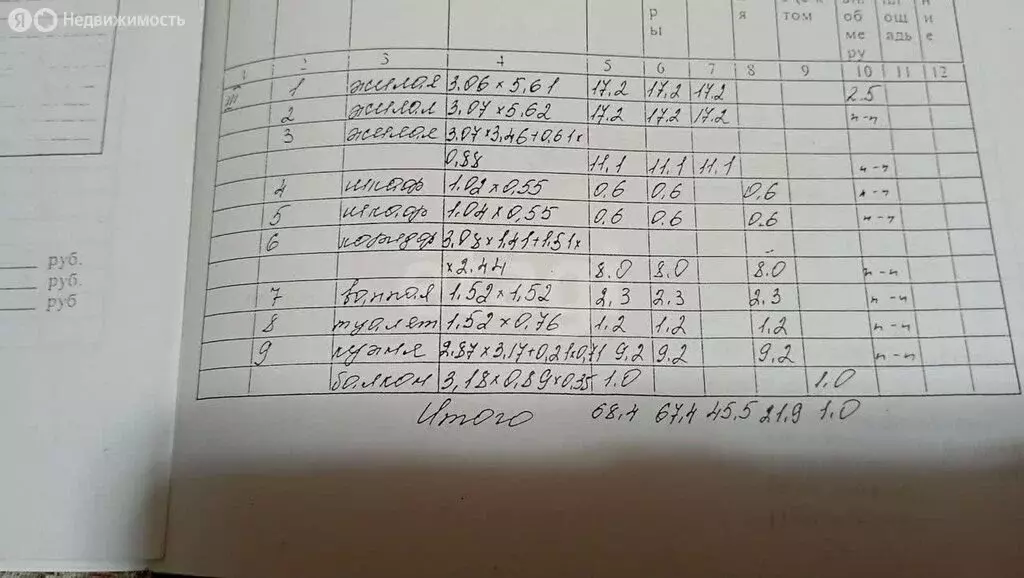 Я Недвижимость
р
ы
я
том
об
ме
ру
ощ
адь
и
е
1 2 3 4 5 6 7 8 9 10 11 12
III 1 жилая 3.06 × 5.61 17.2 17.2 17.2 2.5
2 жилая 3.07 × 5.62 17.2 17.2 17.2 п-п
3 жилая 3.07×3.46+0.61×
0.88 11.1 11.1 11.1 п-п
4 шкаф 1.02 × 0.55 0.6 0.6 0.6 п-п
5 шкаф 1.04 × 0.55 0.6 0.6 0.6 п-п
6 коридор 3.03×1.41+1.51×
×2.44 8.0 8.0 8.0 п-п
7 ванная 1.52 × 1.52 2.3 2.3 2.3 п-п
8 туалет 1.52 × 0.76 1.2 1.2 1.2 п-п
9 кухня 2.87×3.17+0.21×0.71 9.2 9.2 9.2 п-п
балкон 3.18×0.89×0.35 1.0 1.0
Итого 68.4 67.4 45.5 21.9 1.0
руб.
руб.
руб